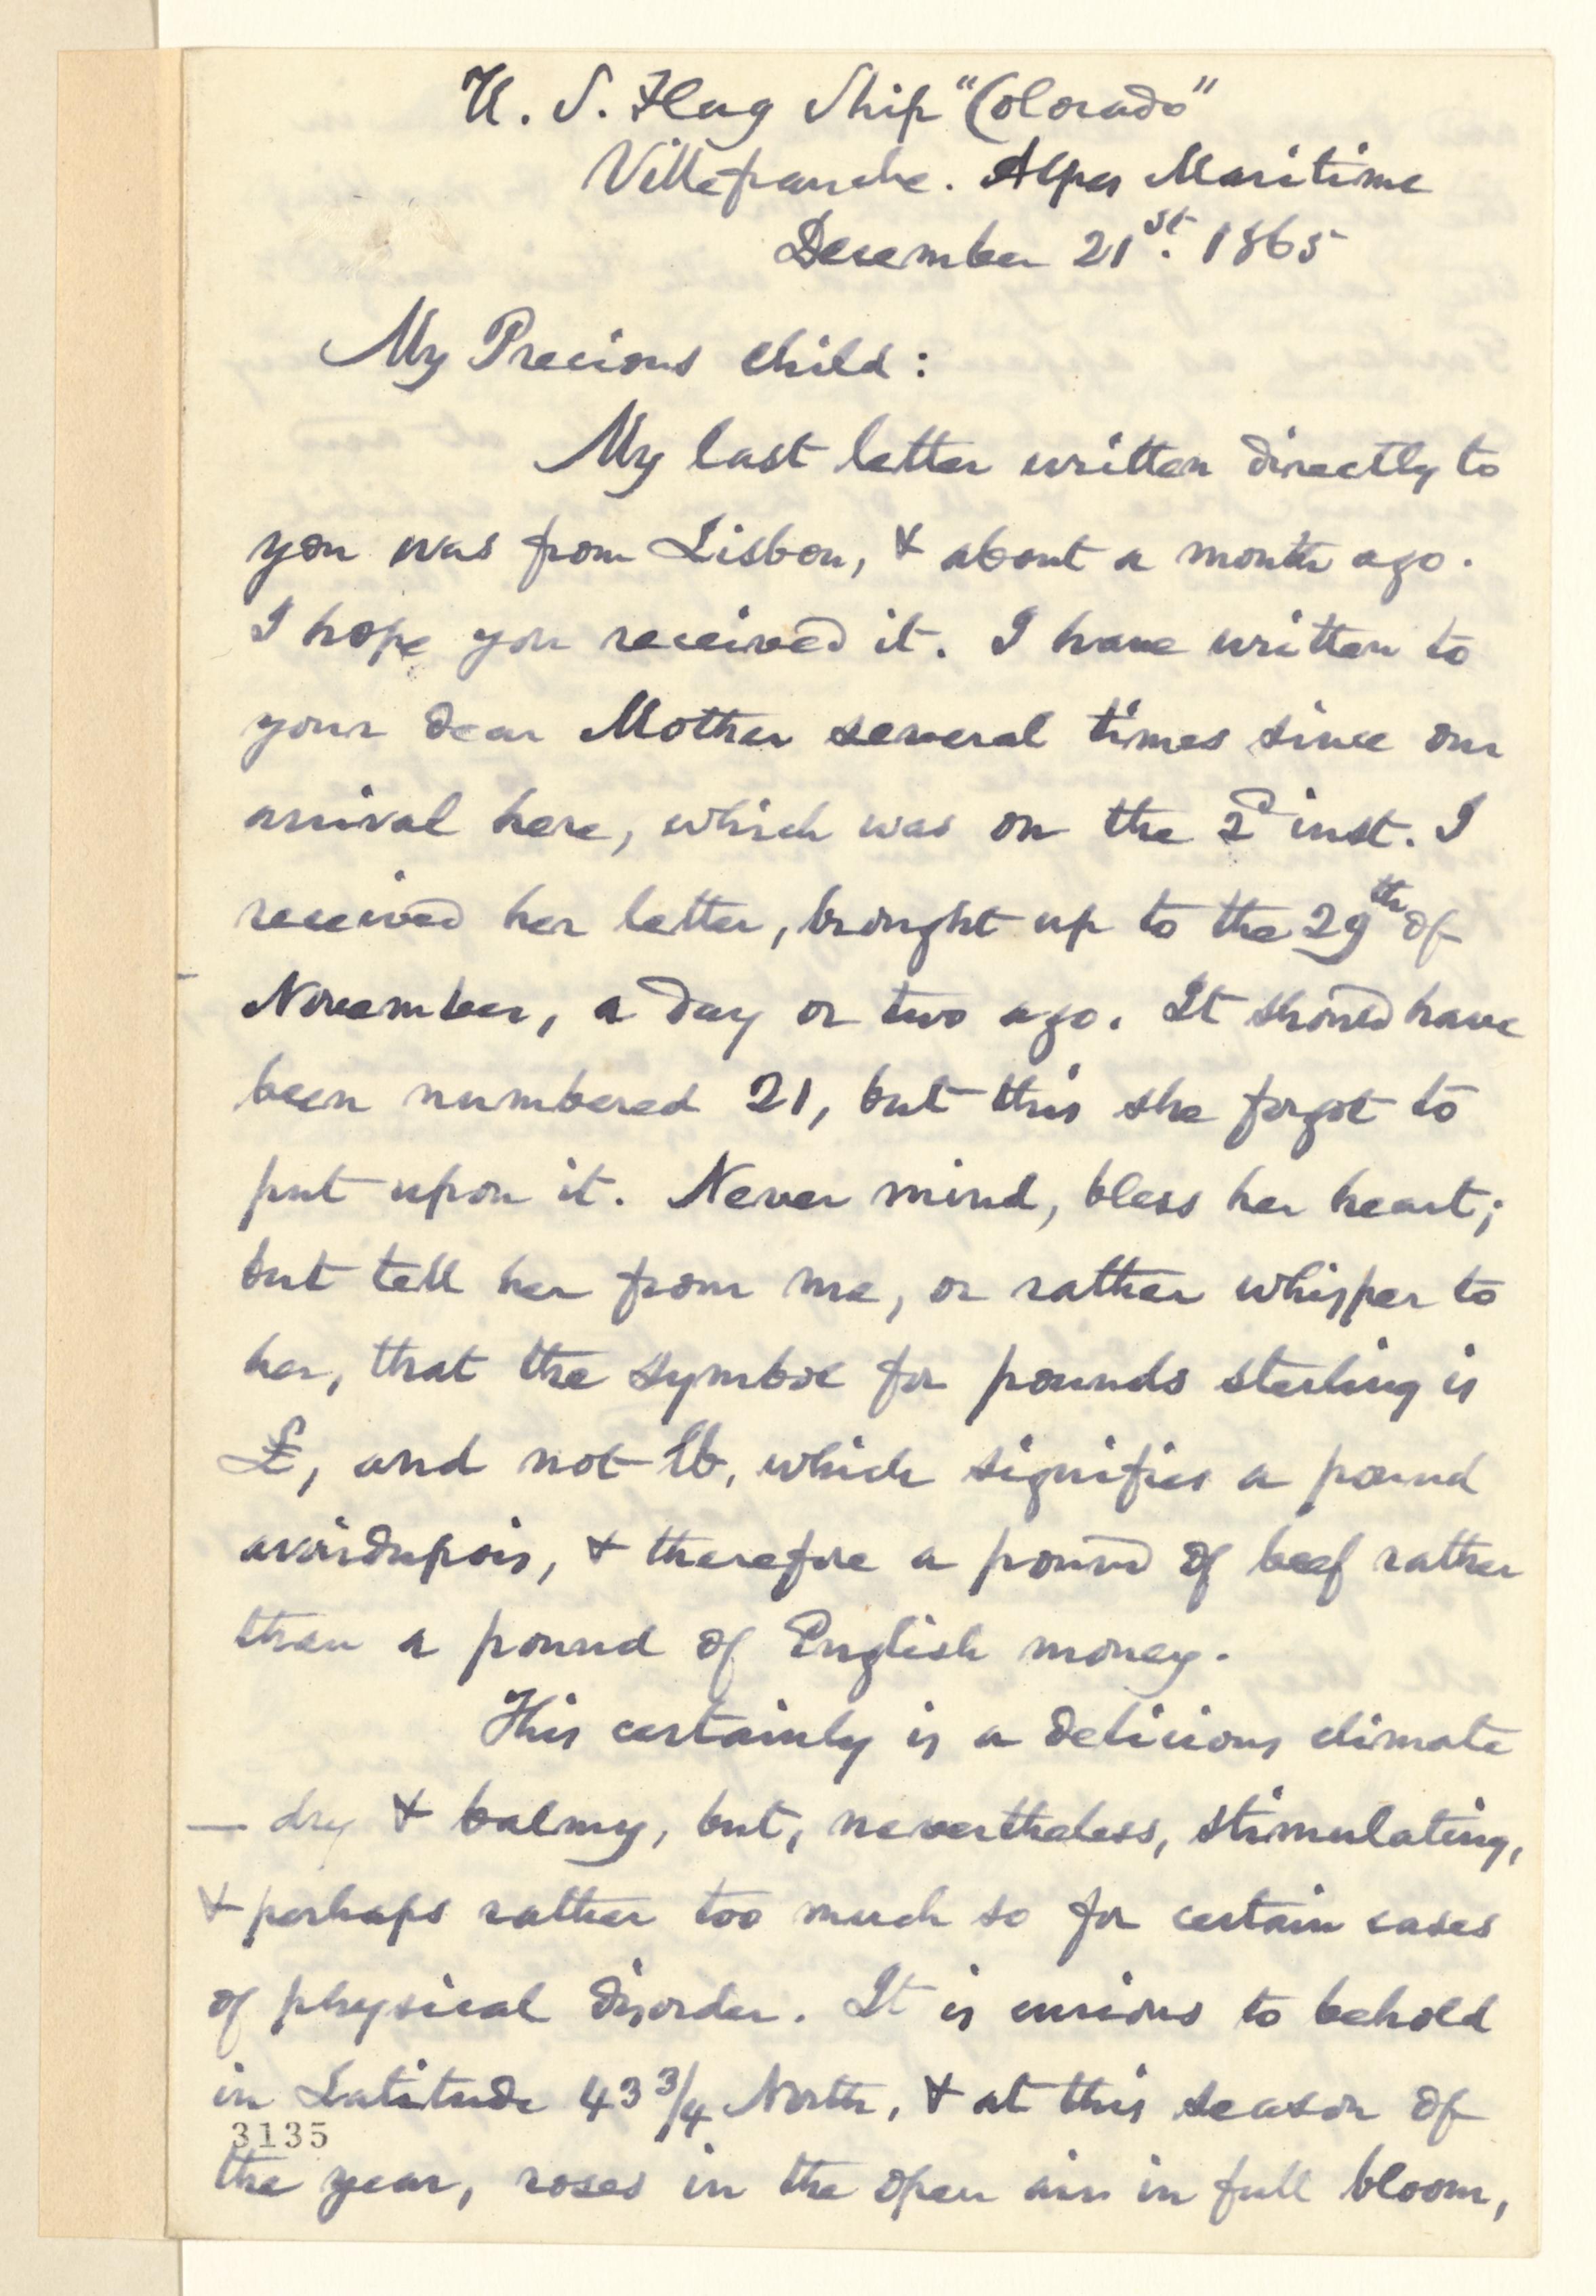 U. S. Flag Ship "Colorado"
Villefranche. Alpes Maritime
December 21st. 1865
My Precious child:
My last letter written directly to
you was from Lisbon, & about a month ago.
I hope you received it. I have written to
your dear Mother several times since our
arrival here, which was on the 2d inst. I
received her letter, brought up to the 29th of
November, a day or two ago. It should have
been numbered 21, but this she forgot to
put upon it. Never mind, bless her heart;
but tell her from me, or rather whisper to
her, that the symbol for pounds sterling is
£, and not lb, which signifies a pound
avoirdupois, & therefore a pound of beef rather
than a pound of English money.
This certainly is a delicious climate
— dry & balmy, but, nevertheless, stimulating,
& perhaps rather too much so for certain cases
of physical disorder. It is curious to behold
in Latitude 43 3/4 North, & at this season of
3135
the year, roses in the open air in full bloom,